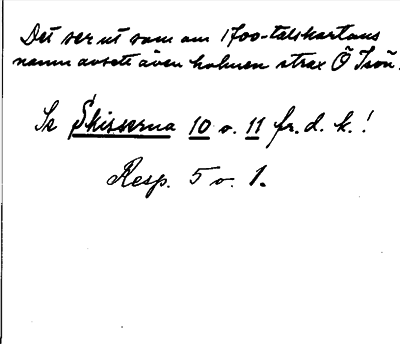 Det ser ut som om 1700-talskartans
namn avsett även holmen strax Ö Isön.
Se Skisserna 10 o. 11 fr. d. k.!
Resp. 5 o. 1.